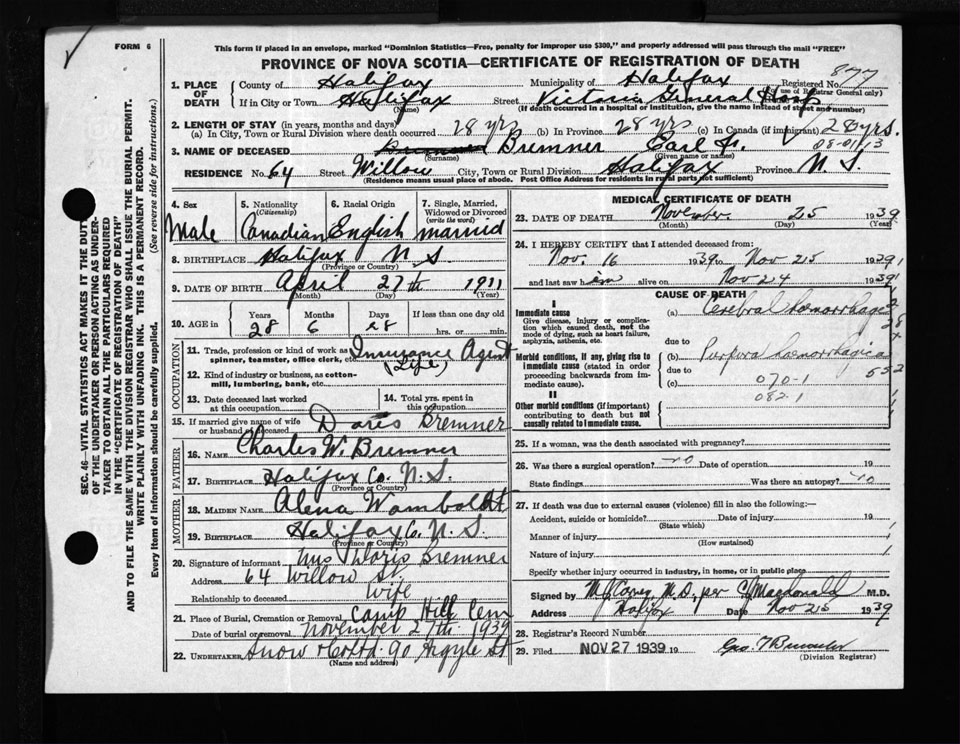 FORM 6
This form if placed in an envelope, marked "Dominion Statistics—Free, penalty for improper use $300," and properly addressed will pass through the mail "FREE"
PROVINCE OF NOVA SCOTIA—CERTIFICATE OF REGISTRATION OF DEATH
877
1. PLACE OF DEATH County of Halifax Municipality of Halifax Registered No. (use of Registrar General only)
If in City or Town Halifax Street Victoria General Hosp.
(If death occurred in a hospital or institution, give the name instead of street and number)
2. LENGTH OF STAY (in years, months and days)
(a) In City, Town or Rural Division where death occurred 28 yrs (b) In Province 28 yrs (c) In Canada (if immigrant) 28 yrs.
08-01/13
3. NAME OF DECEASED Bremner Bremner Earl
(Surname) (Given name or names)
RESIDENCE No. 64 Street Willow City, Town or Rural Division Halifax Province N.S.
(Residence means usual place of abode. Post Office Address for residents in rural parts not sufficient)
4. Sex 5. Nationality (Citizenship) 6. Racial Origin 7. Single, Married, Widowed or Divorced (write the word)
Male Canadian English married
8. BIRTHPLACE Halifax N.S.
(Province or Country)
9. DATE OF BIRTH April 27th 1911
(Month) (Day) (Year)
10. AGE in Years Months Days If less than one day old
28 6 28 hrs. or min.
OCCUPATION
11. Trade, profession or kind of work as spinner, teamster, office clerk, etc. Insurance Agent
(Life)
12. Kind of industry or business, as cotton-mill, lumbering, bank, etc.
13. Date deceased last worked at this occupation
14. Total yrs. spent in this occupation
15. If married give name of wife or husband of deceased Doris Bremner
FATHER
16. NAME Charles W. Bremner
17. BIRTHPLACE Halifax Co. N.S.
(Province or Country)
MOTHER
18. MAIDEN NAME Alena Wamboldt
19. BIRTHPLACE Halifax Co. N.S.
(Province or Country)
20. Signature of informant Mrs Doris Bremner
Address 64 Willow St.
Relationship to deceased wife
21. Place of Burial, Cremation or Removal Camp Hill Cem
Date of burial or removal November 27th 1939
22. UNDERTAKER Snow & Co Ltd. 90 Argyle St
(Name and address)
MEDICAL CERTIFICATE OF DEATH
23. DATE OF DEATH November 25 1939
(Month) (Day) (Year)
24. I HEREBY CERTIFY that I attended deceased from:
Nov. 16 1939 to Nov 25 1939
and last saw him alive on Nov 24 1939
CAUSE OF DEATH
I
Immediate cause
Give disease, injury or complication which caused death, not the mode of dying, such as heart failure, asphyxia, asthenia, etc.
(a) Cerebral haemorrhage
due to
Morbid conditions, if any, giving rise to immediate cause (stated in order proceeding backwards from immediate cause).
(b) Purpura haemorrhagica
due to
(c) 070-1
082-1
II
Other morbid conditions (if important) contributing to death but not causally related to immediate cause.
25. If a woman, was the death associated with pregnancy?
26. Was there a surgical operation? no Date of operation 19
State findings Was there an autopsy? no
27. If death was due to external causes (violence) fill in also the following:
Accident, suicide or homicide? Date of injury 19
(State which)
Manner of injury
(How sustained)
Nature of injury
Specify whether injury occurred in industry, in home, or in public place
Signed by M.D., per Macdonald M.D.
Address Halifax Date Nov 25 1939
28. Registrar's Record Number
29. Filed NOV 27 1939 19
(Division Registrar)
SEC. 46—VITAL STATISTICS ACT MAKES IT THE DUTY OF THE UNDERTAKER OR PERSON ACTING AS UNDERTAKER TO OBTAIN ALL THE PARTICULARS REQUIRED IN THE "CERTIFICATE OF REGISTRATION OF DEATH"
AND TO FILE THE SAME WITH THE DIVISION REGISTRAR WHO SHALL ISSUE THE BURIAL PERMIT.
WRITE PLAINLY WITH UNFADING INK. THIS IS A PERMANENT RECORD.
Every item of information should be carefully supplied. (See reverse side for instructions.)